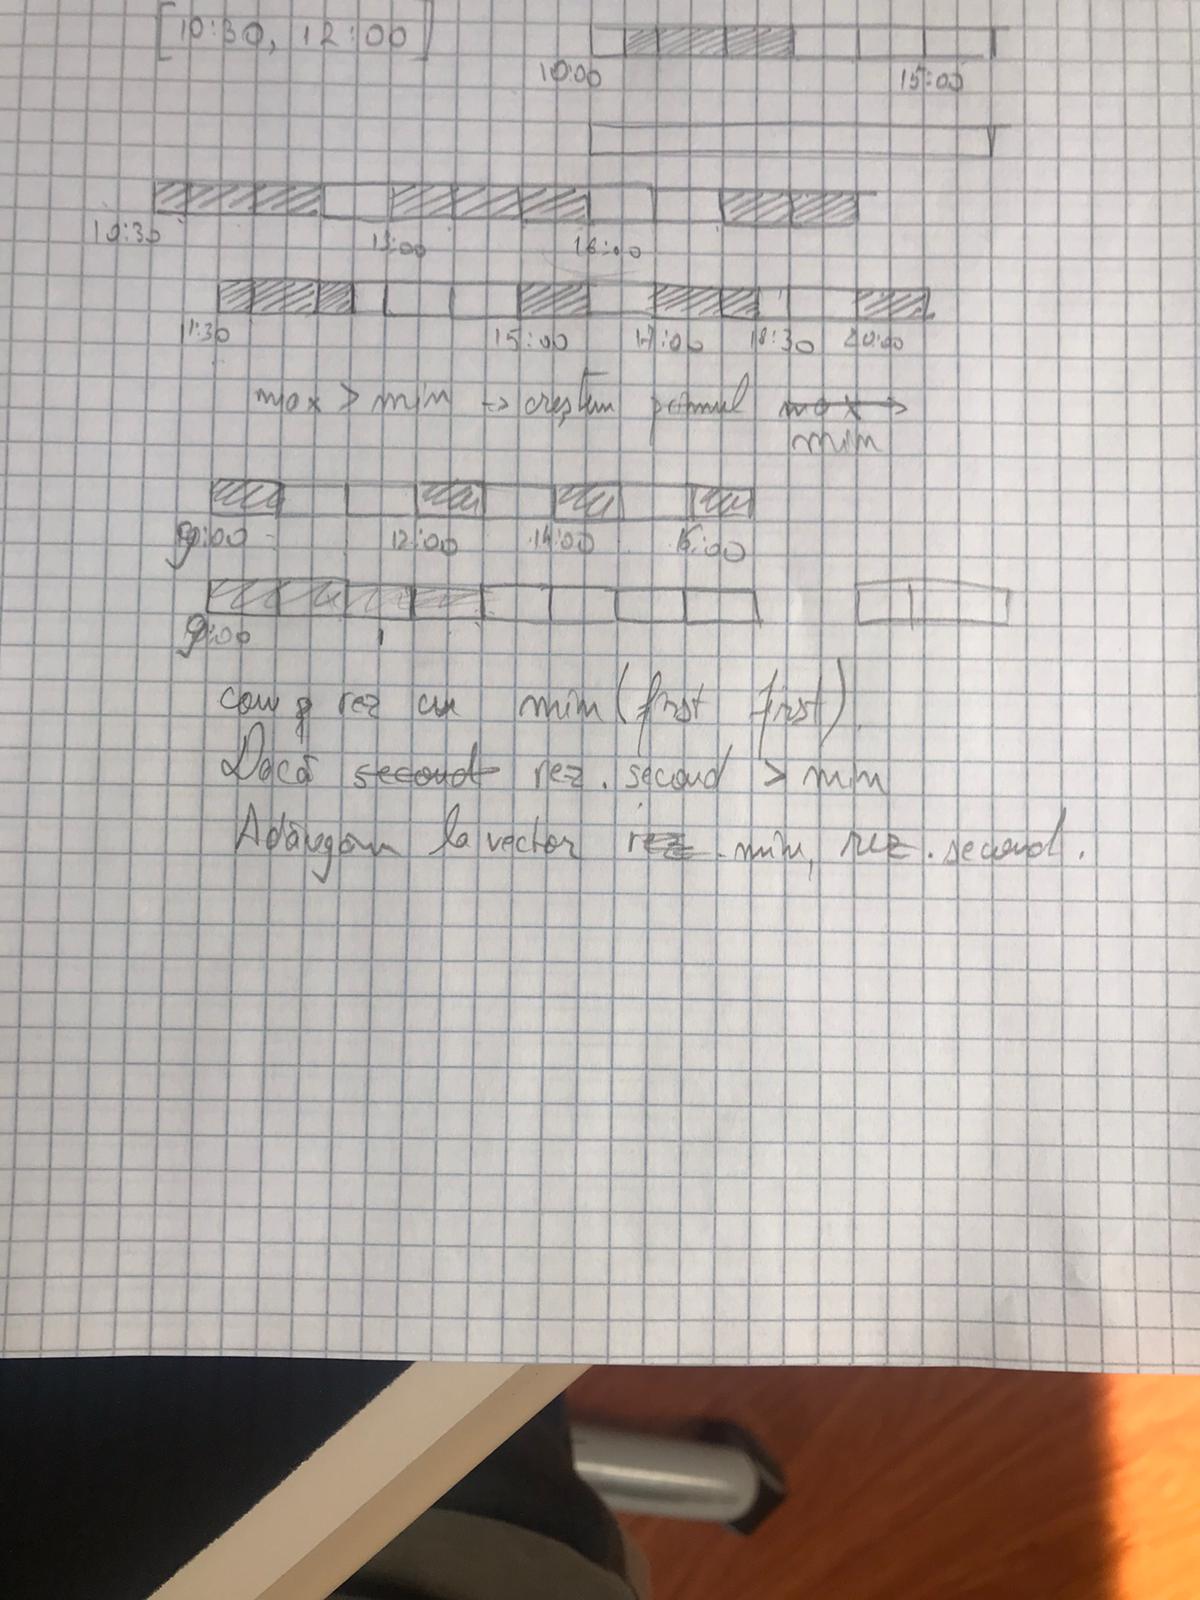 [10:30, 12:00]
10:00 15:00
10:30 13:00 16:00
11:30 15:00 17:00 18:30 20:00
max > min -> creștem primul max
min
9:00 12:00 14:00 16:00
9:00
comp rez cu min(first first).
Dacă second rez. second > min
Adăugăm la vector rez min, rez. second.